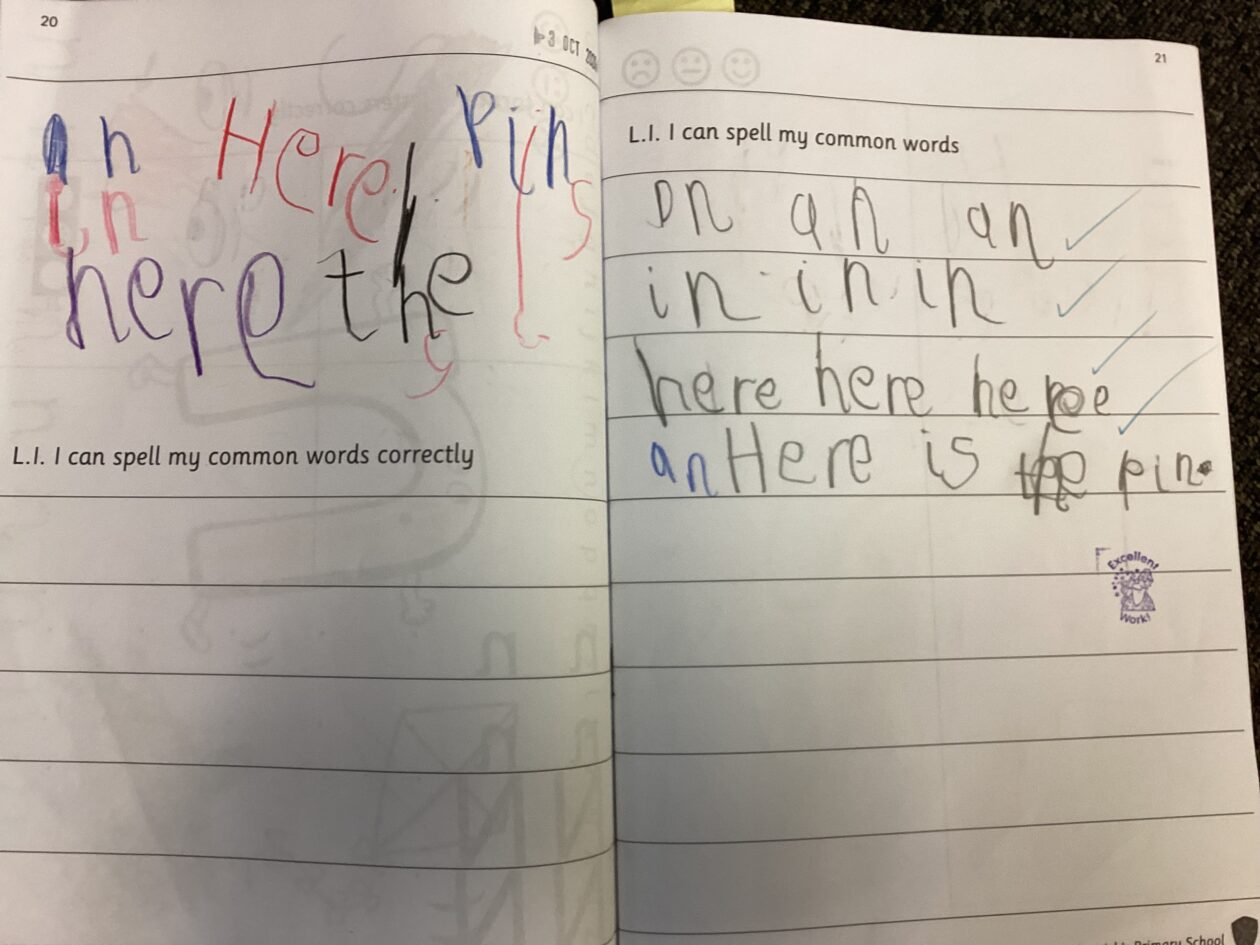 20
3 OCT
an Here pin
in s
here the
L.I. I can spell my common words correctly
21
L.I. I can spell my common words
an an an
in in in
here here here
an Here is the pin.
Excellent
Work!
Primary School